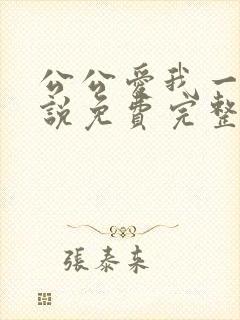 公公愛我一
說免費完整
張泰来